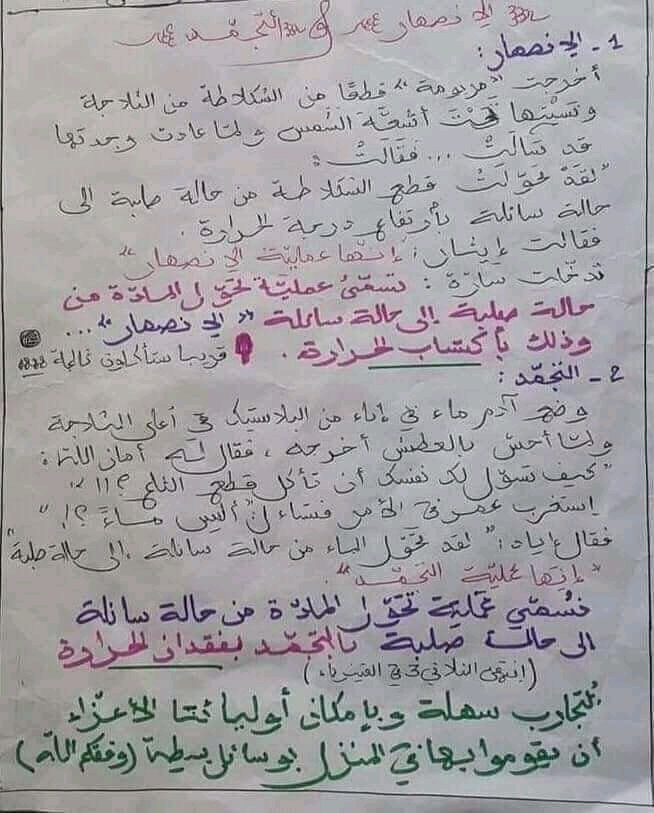 الإنصهار و التجمّد
1 - الإنصهار:
أخرجت "مريومة" قطعًا من الشكلاطة من الثلاجة
ونسيتها تحت أشعّة الشمس ولمّا عادت وجدتها
قد سالت ... فقالت:
"لقد تحوّلت قطع الشكلاطة من حالة صلبة الى
حالة سائلة بارتفاع درجة الحرارة.
فقالت إيشان: إنّها عمليّة الإنصهار"
تدخّلت سارّة: تسمّى عمليّة تحوّل المادّة من
حالة صلبة إلى حالة سائلة "الإنصهار" ...
وذلك بأكتساب الحرارة.
قريبا ستأكلون
2 - التجمّد:
وضع آدم ماء في إناء من البلاستيك في أعلى الثلاجة
ولمّا أحسّ بالعطش أخرجه، فقال له أمان الله:
"كيف تسوّل لك نفسك أن تأكل قطع الثلج؟!!"
إستغرب عمر في الأمر فتساءل "أليس ماءً؟!"
فقال إياد: "لقد تحوّل الماء من حالة سائلة إلى حالة صلبة"
"إنّها عمليّة التجمّد".
نسمّي عمليّة تحوّل المادّة من حالة سائلة
الى حالة صلبة بالتجمّد بفقدان الحرارة
(إنتهى الثلاثي 3 في الفيزياء)
التجارب سهلة وبإمكان أوليائنا الأعزّاء
أن يقوموا بها في المنزل بوسائل بسيطة (وفقكم الله)